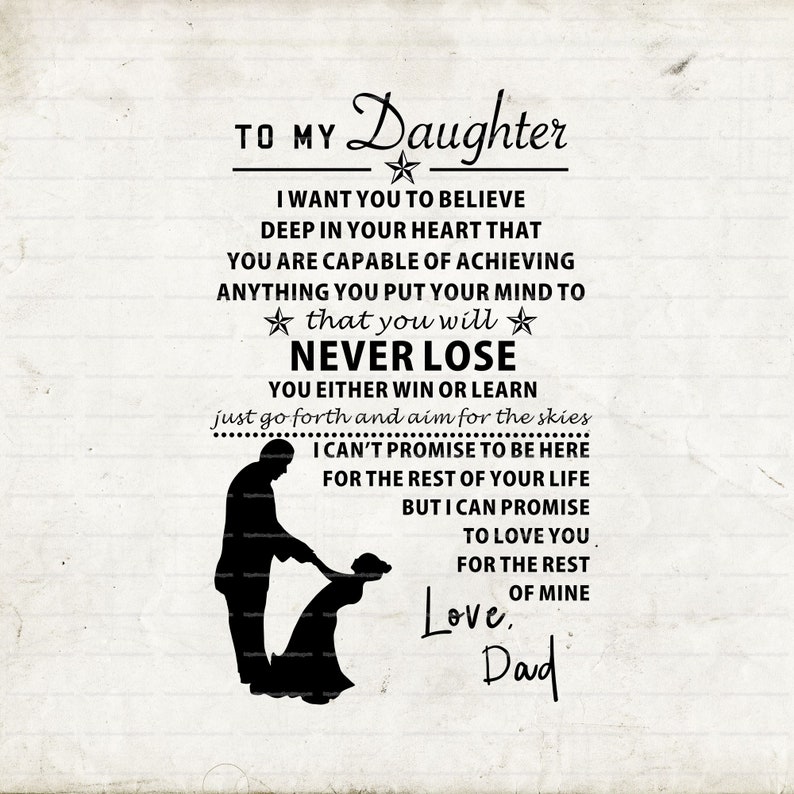 TO MY Daughter
I WANT YOU TO BELIEVE
DEEP IN YOUR HEART THAT
YOU ARE CAPABLE OF ACHIEVING
ANYTHING YOU PUT YOUR MIND TO
that you will
NEVER LOSE
YOU EITHER WIN OR LEARN
just go forth and aim for the skies
I CAN'T PROMISE TO BE HERE
FOR THE REST OF YOUR LIFE
BUT I CAN PROMISE
TO LOVE YOU
FOR THE REST
OF MINE
Love,
Dad